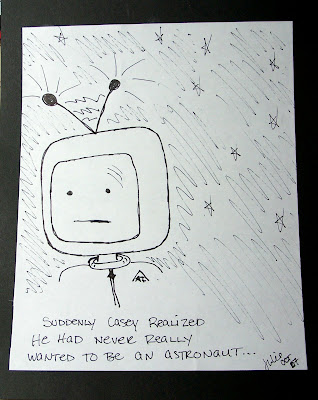 SUDDENLY CASEY REALIZED
HE HAD NEVER REALLY
WANTED TO BE AN ASTRONAUT...